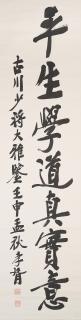 半生學道真實意
古川少將大雅鑒壬申孟秋孝胥